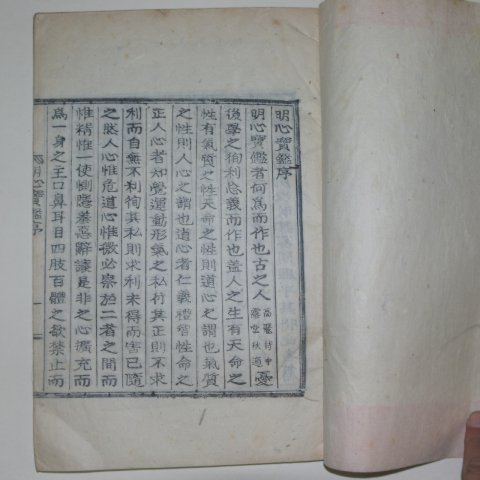 明心寶鑑序
明心寶鑑者何爲而作也古之人高麗侍中露堂秋適憂
後學之徇利忘義而作也盖人之生有天命之
性有氣質之性天命之性則道心之謂也氣質
之性則人心之謂也道心者仁義禮智性命之
正人心者知覺運動形氣之私付其正則不求
利而自無不利徇其私則求利未得而害已隨
之然人心惟危道心惟微必察於二者之間而
惟精惟一使惻隱羞惡辭讓是非之心擴充而
爲一身之主口鼻耳目四肢百體之欲禁止而
明心寶鑑序
一